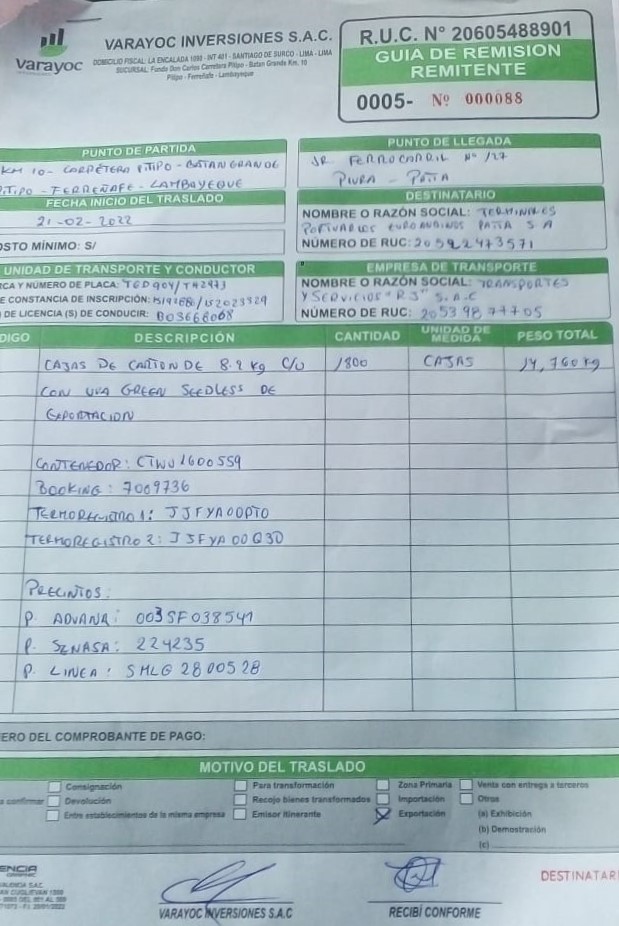 varayoc
VARAYOC INVERSIONES S.A.C.
DOMICILIO FISCAL: LA ENCALADA 1090 - INT 401 - SANTIAGO DE SURCO - LIMA - LIMA
SUCURSAL: Fundo Don Carlos Carretera Pitipo - Batan Grande Km. 10
Pitipo - Ferreñafe - Lambayeque
R.U.C. N° 20605488901
GUIA DE REMISION
REMITENTE
0005- Nº 000088
PUNTO DE PARTIDA
KM 10 - CARRETERA PITIPO - BATAN GRANDE
PITIPO - FERREÑAFE - LAMBAYEQUE
PUNTO DE LLEGADA
JR FERROCARRIL Nº 127
PIURA - PAITA
FECHA INICIO DEL TRASLADO
21-02-2022
OSTO MÍNIMO: S/
DESTINATARIO
NOMBRE O RAZÓN SOCIAL: TERMINALES
PORTUARIOS EUROANDINOS PAITA S A
NÚMERO DE RUC: 20592473571
UNIDAD DE TRANSPORTE Y CONDUCTOR
CA Y NÚMERO DE PLACA:
E CONSTANCIA DE INSCRIPCIÓN:
DE LICENCIA (S) DE CONDUCIR: B03666068
EMPRESA DE TRANSPORTE
NOMBRE O RAZÓN SOCIAL: TRANSPORTES
Y SERVICIOS "RJ" S.A.C
NÚMERO DE RUC: 20539877705
DIGO DESCRIPCIÓN CANTIDAD UNIDAD DE MEDIDA PESO TOTAL
CAJAS DE CARTON DE 8.2 Kg C/U 1800 CAJAS 14,760 kg
CON UVA GREEN SEEDLESS DE
EXPORTACION
CONTENEDOR: CTWU1600559
BOOKING: 7009736
TERMOREGISTRO 1: JJFYA00PT0
TERMOREGISTRO 2: JJFYA00Q30
PRECINTOS:
P. ADUANA: 003SF038541
P. SENASA: 224235
P. LINEA: SMLG2800528
ERO DEL COMPROBANTE DE PAGO:
MOTIVO DEL TRASLADO
Consignación Para transformación Zona Primaria Venta con entrega a terceros
a confirmar Devolución Recojo bienes transformados Importación Otros
Entre establecimientos de la misma empresa Emisor Itinerante Exportación (a) Exhibición
(b) Demostración
(c)
VARAYOC INVERSIONES S.A.C
RECIBÍ CONFORME
DESTINATARI